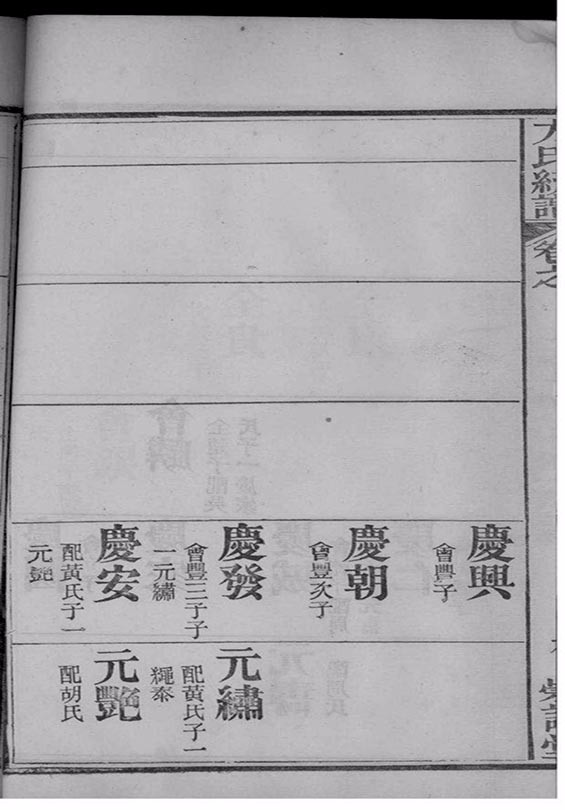 氏續譜
卷之
慶興
會豐子
慶朝
會豐次子
慶發
會豐三子子
一元繡
慶安
配黃氏子一
元艷
元繡
配黃氏子一
繩泰
元艷
配胡氏